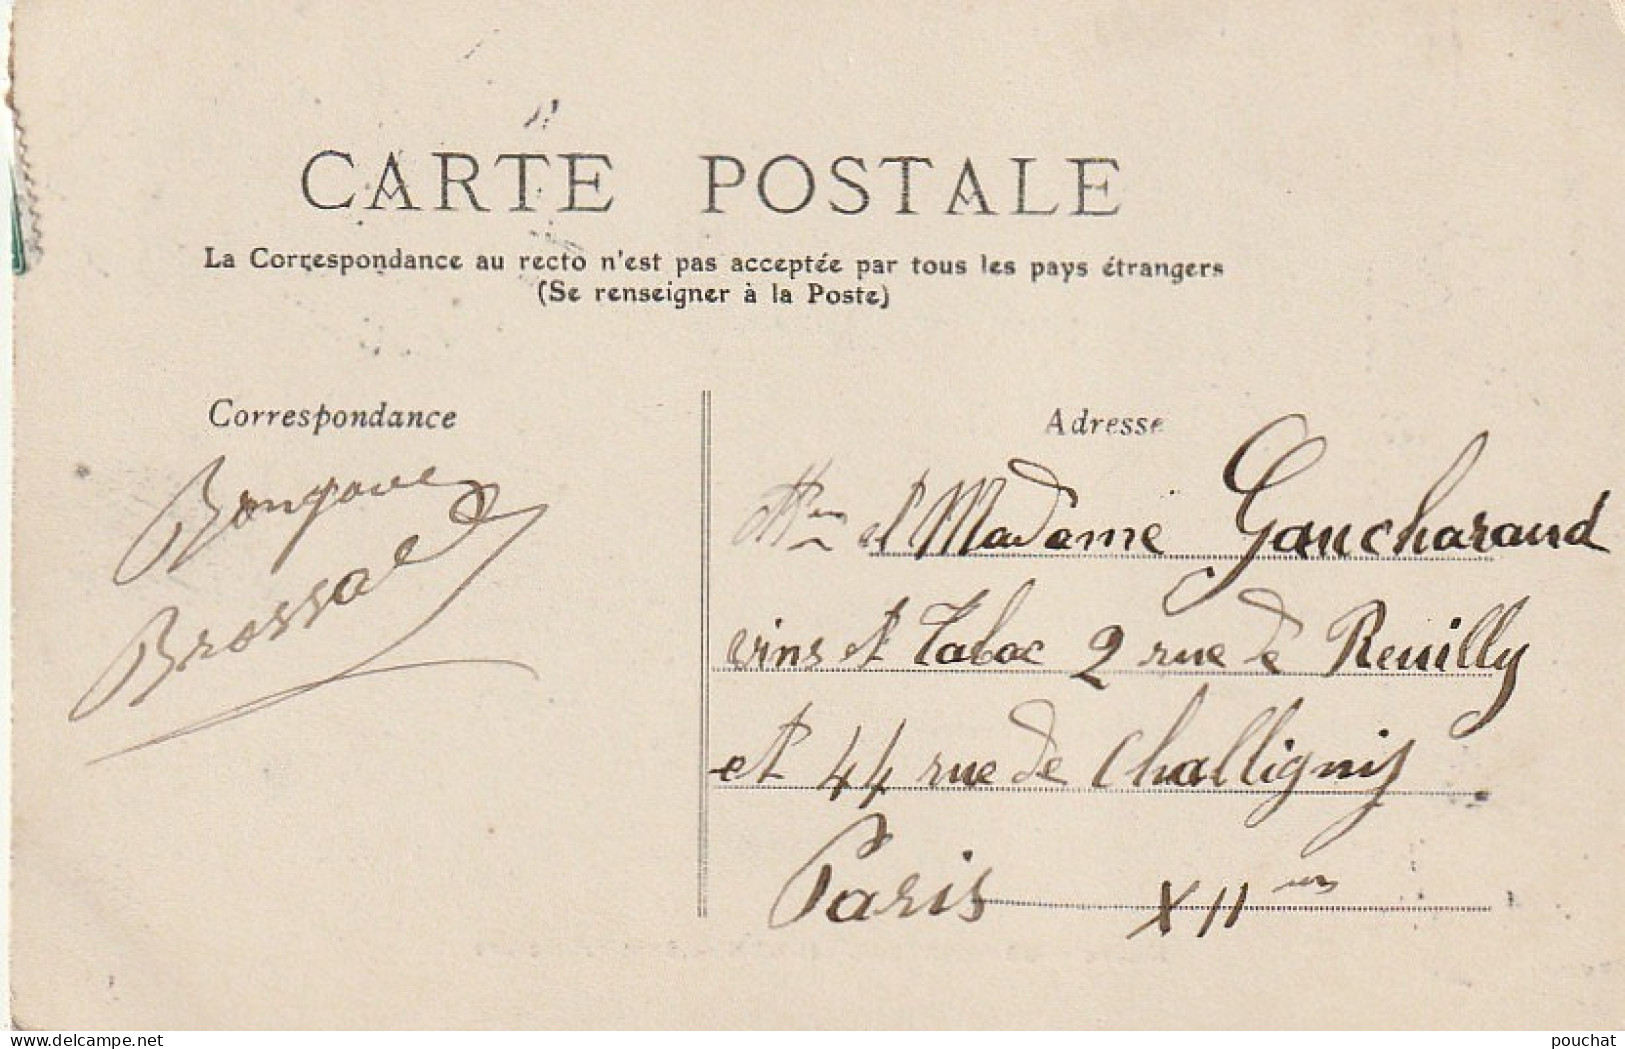 CARTE POSTALE
La Correspondance au recto n'est pas acceptée par tous les pays étrangers
(Se renseigner à la Poste)
Correspondance
Brossa
Adresse
et Madame Gaucharaud
vins et Tabac 2 rue de Reuilly
et 44 rue de Challigny
Paris XII
www.delcampe.net
pouchat